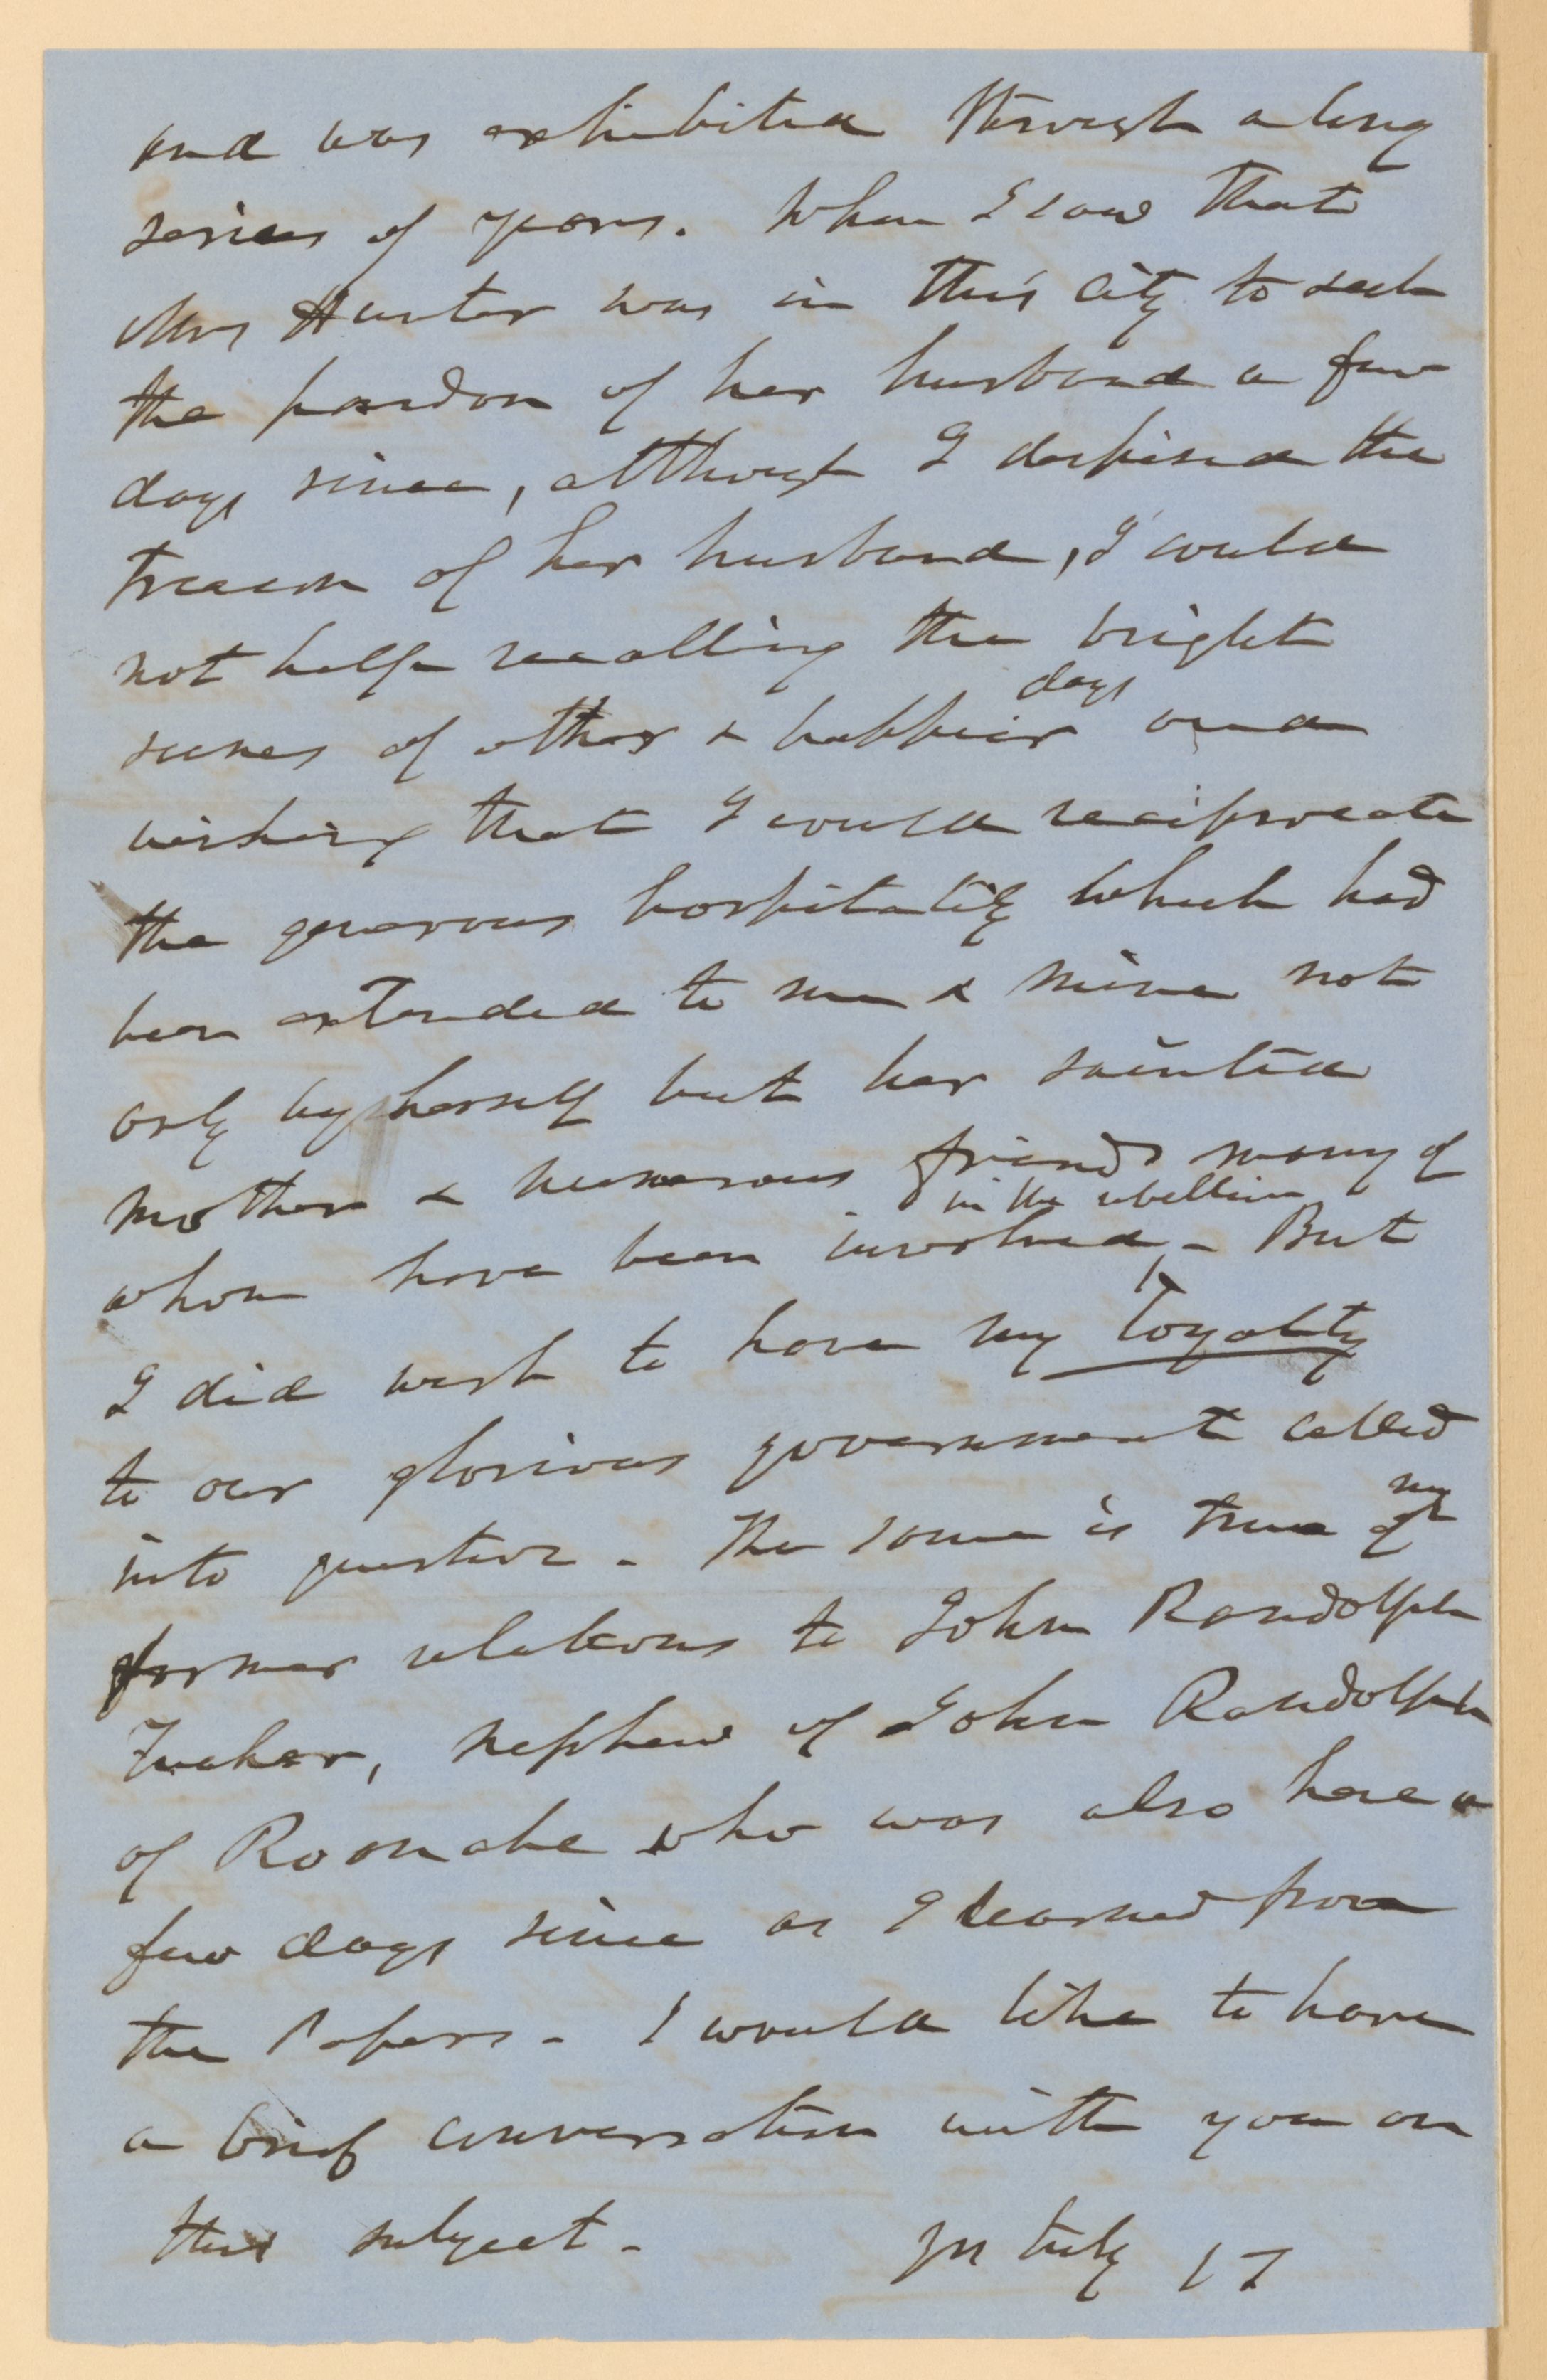 and was exhibited through a long
series of years. When I saw that
Mrs Hunter was in this city to seek
the pardon of her husband a few
days since, although I despised the
treason of her husband, I could
not help recalling the bright
days
scenes of other & happier and
wishing that I could reciprocate
the generous hospitality which had
been extended to me & mine not
only by herself but her sainted
mother & numerous friends many of
in the rebellion
whom have been involved, - But
I did wish to have my loyalty
to our glorious government called
into question - The same is true of
my
former relations to John Randolph
Tucker, nephew of John Randolph
of Roanoke who was also here a
few days since as I learned from
the Papers - I would like to have
a brief conversation with you on
this subject - Yrs truly